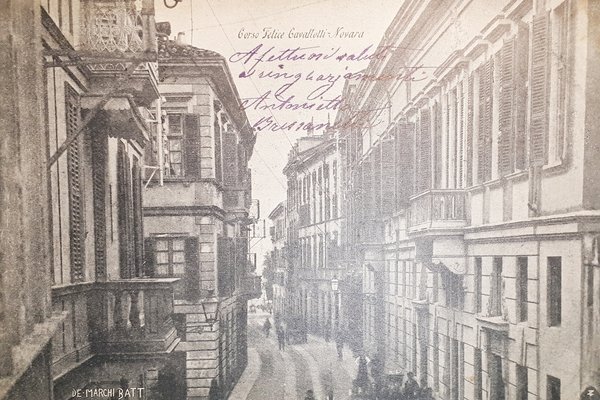 Corso Felice Cavallotti - Novara
Afettuosi saluti
e ringraziamenti
Antonietta
DE-MARCHI BATT